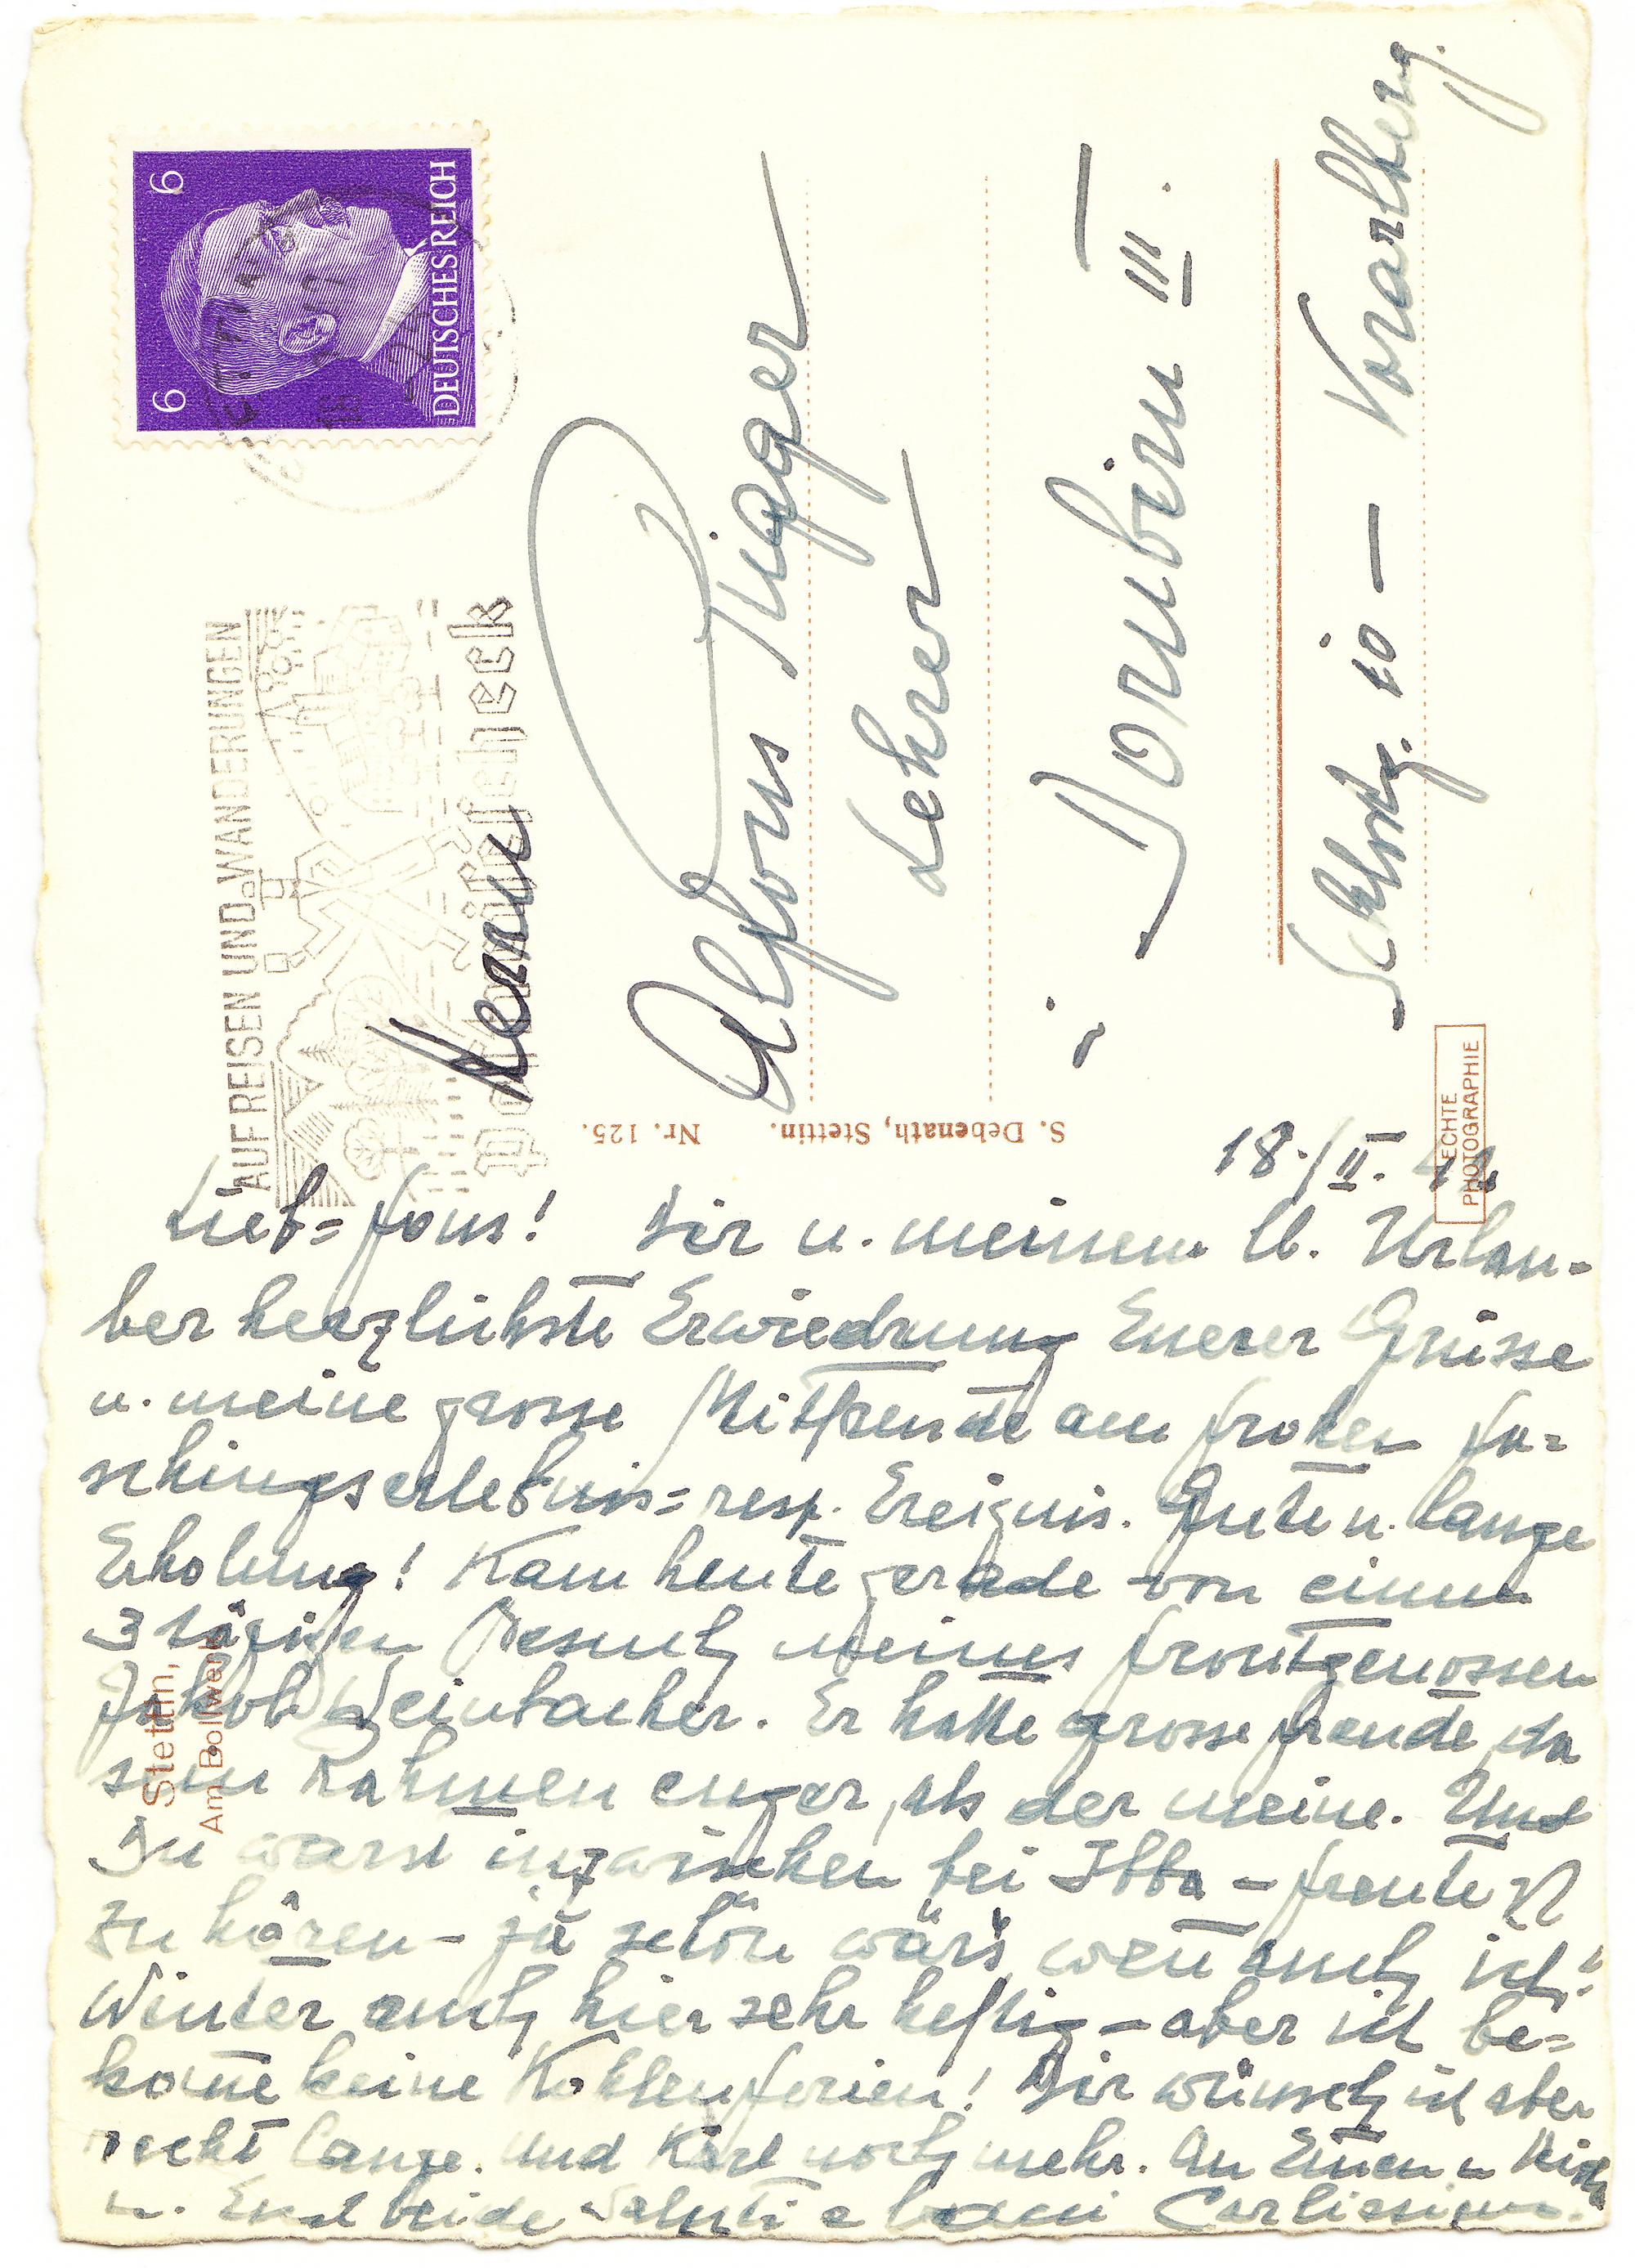 6 6
DEUTSCHES REICH
AUF REISEN UND WANDERUNGEN
Postscheck
Alfons Rigger
Lehrer
i. Dornbirn III. —
Schloßg. 10 — Vorarlberg.
S. Debenath, Stettin. Nr. 125.
ECHTE
PHOTOGRAPHIE
Stettin,
Am Bollwerk
18./II.
Lieb= Fons! Dir u. meinem lb. Urlau-
ber herzlichste Erwiedrung Euerer Grüsse
u. meine grosse Mitfreude am frohen Fa=
schingserlebnis= resp. Ereignis. Gute u. lange
Erholung! Kam heute gerade von einem
3 tägigen Besuch meines Frontgenossen
Jakob Weinbacher. Er hatte grosse Freude, da
sein Rahmen enger, als der meine. Und
Du warst inzwischen bei Ibba – freute
zu hören – zu schön wärs wen̄ auch ich!
Winter auch hier sehr heftig – aber ich be=
kom̄e keine Kohlenferien! Dir wünsch ich aber
recht lange. Und Karl noch mehr. An
u. beide Saluti e baci Carlissimo.